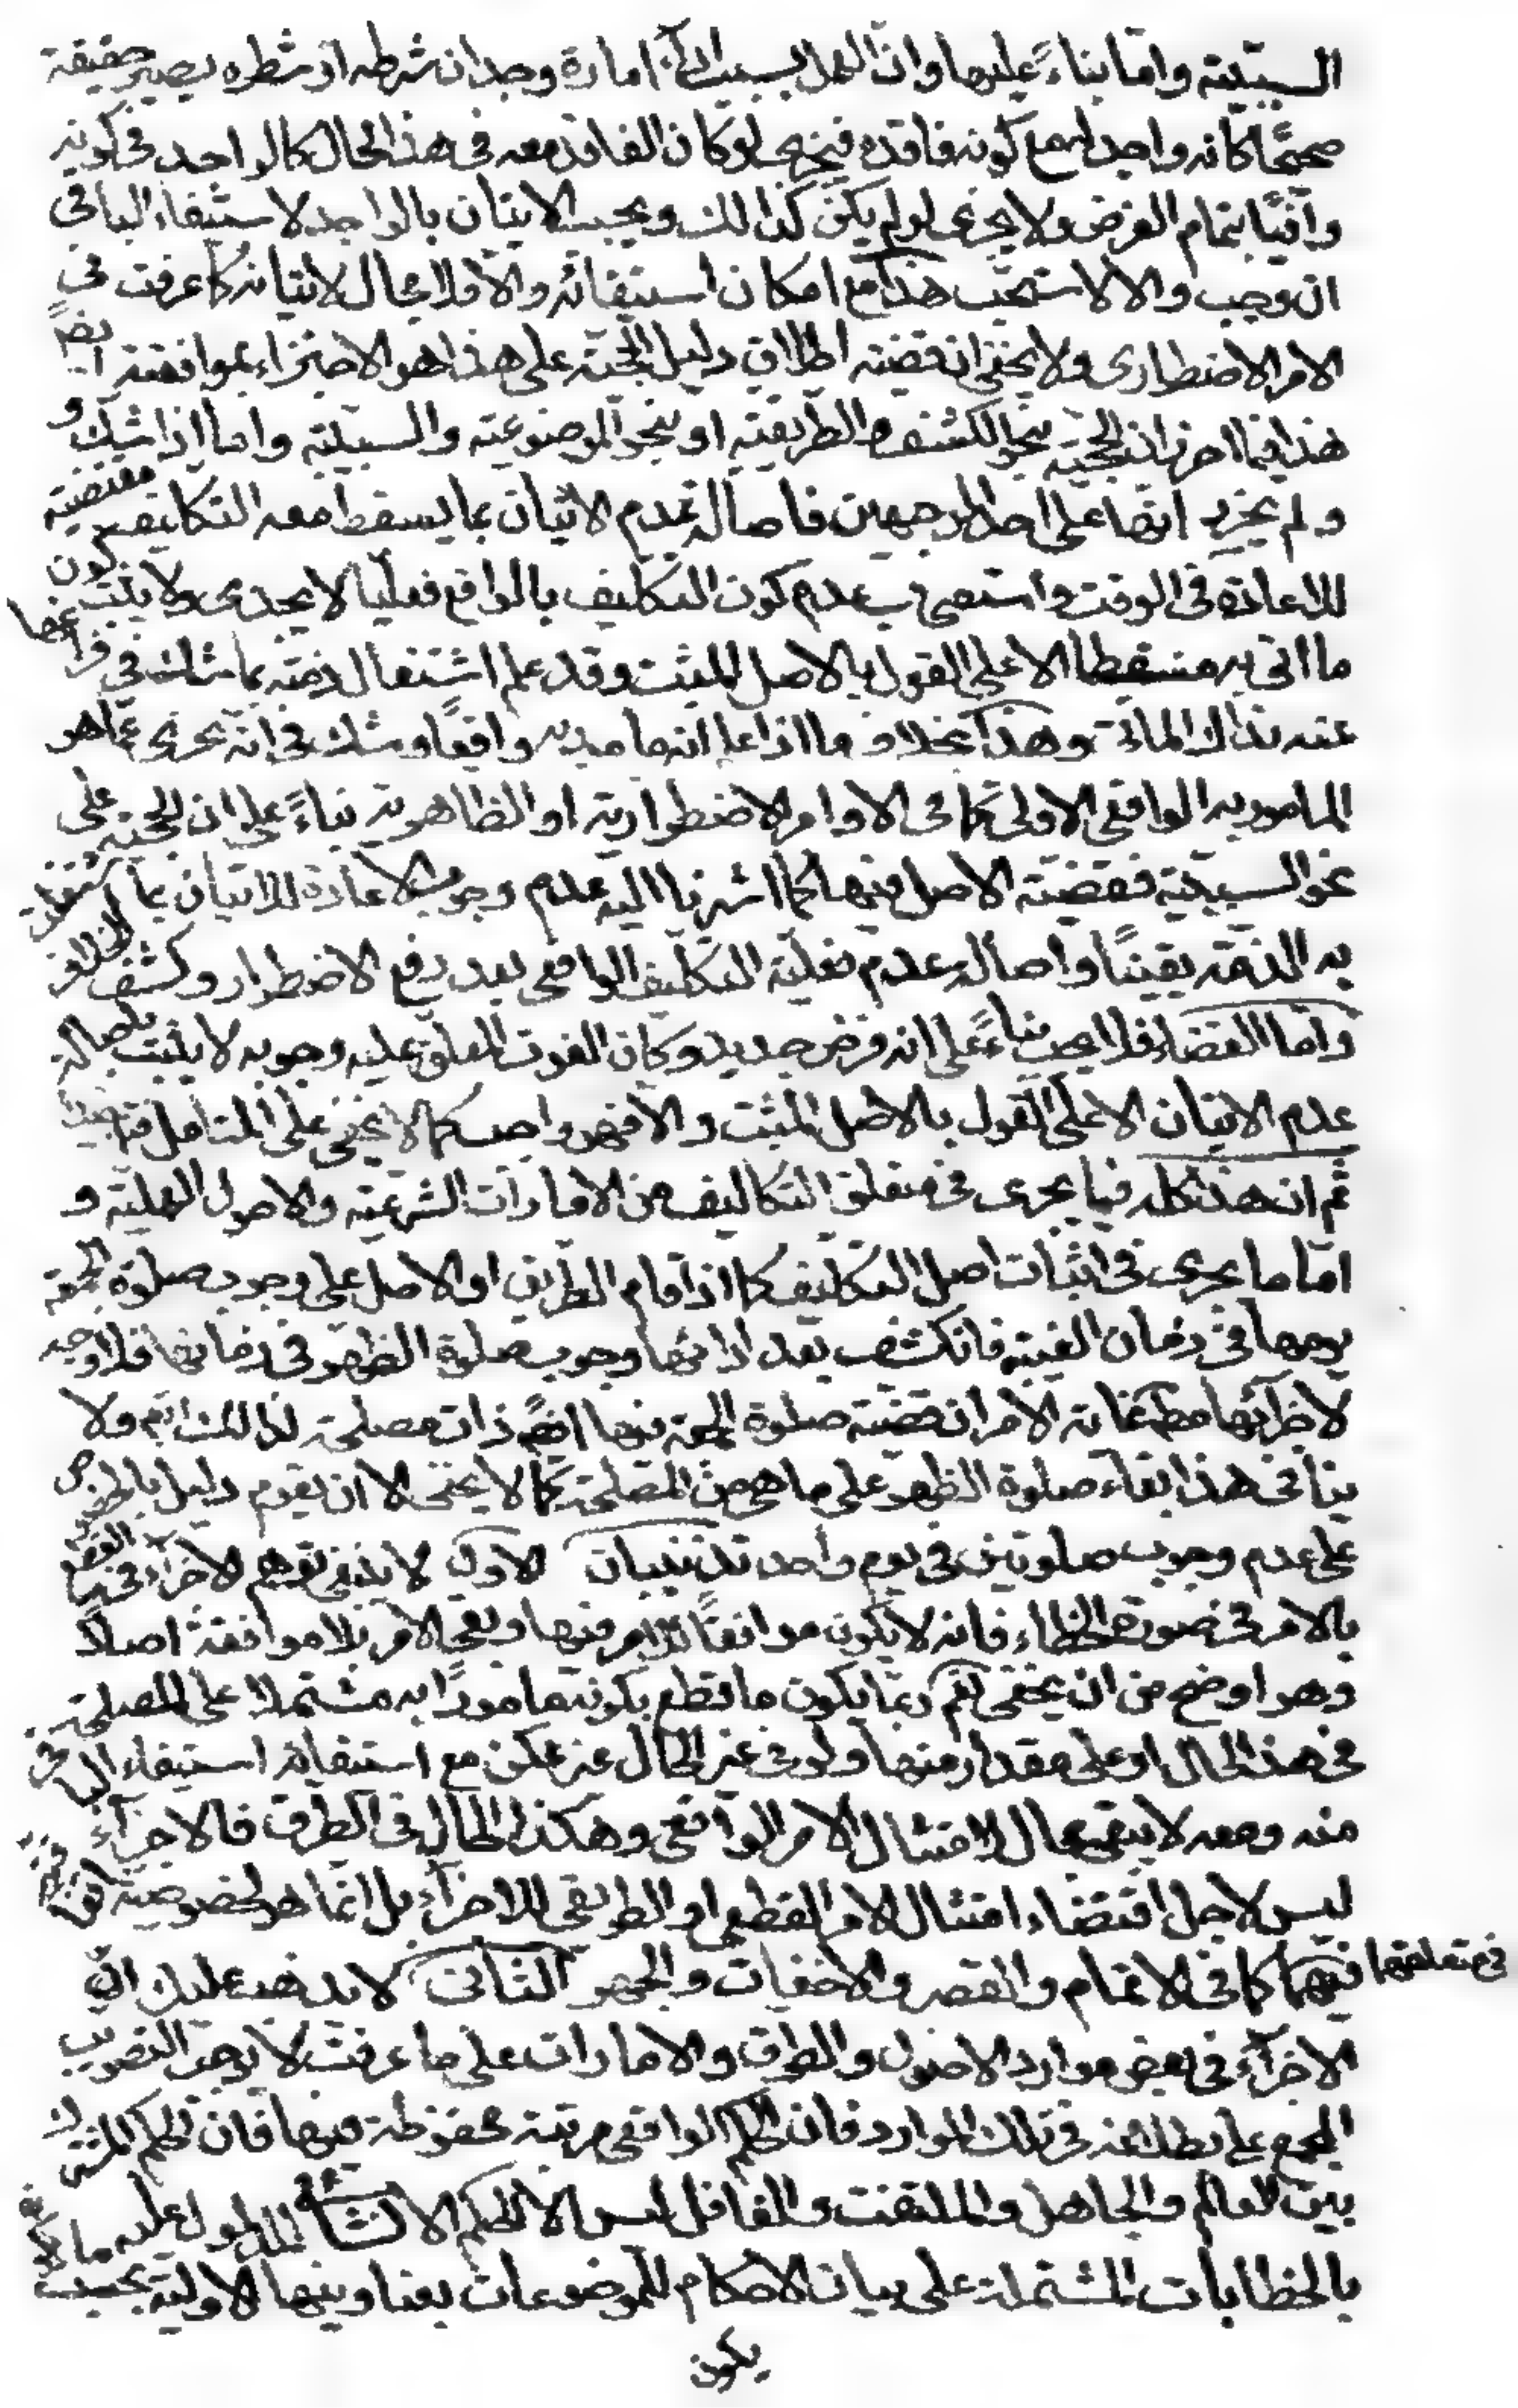 السببية واما بناء عليها وان العمل بسبب اداء امارة وجدان شرطه او شطره يصير حقيقة
صحيحا كانه واجد له مع كونه فاقده فيجزى لو كان الفاقد معه فى هذا الحال كالواجد فى كونه
وافيا بتمام الغرض ولا يجزى لو لم يكن كذلك ويجب الاتيان بالواجد لاستيفاء الباقى
ان وجب والا لاستحب هذا مع امكان استيفائه والا فلا مجال لاتيانه كما عرفت فى
الامر الاضطرارى ولا يخفى ان قضية اطلاق دليل الحجية على هذا هو الاجتزاء بموافقته ايضا
هذا فيما احرز ان الحجية بنحو الكشف والطريقية او بنحو الموضوعية والسببية واما اذا شك و
ولم يحرز انها على اى الوجهين فاصالة عدم الاتيان بما يسقط معه التكليف مقتضية
للاعادة فى الوقت واستصحاب عدم كون التكليف بالواقع فعليا لا يجدى ولا يثبت كون
ما اتى به مسقطا الا على القول بالاصل المثبت وقد علم اشتغال ذمته بما شك فى فراغها
عنه بذلك الماتى وهذا بخلاف ما اذا علم انه مامور به واقعا وشك فى انه يجزى عما هو
المامور به الواقعى الاولى كما فى الاوامر الاضطرارية او الظاهرية بناء على ان الحجية على
نحو السببية فقضية الاصل فيها كما اشرنا اليه عدم وجوب الاعادة للاتيان بما اشتغلت
به الذمة يقينا واصالة عدم فعلية التكليف الواقعى بعد رفع الاضطرار وكشف الخلاف
واما القضاء فلا يجب بناء على انه فرض جديد وكان الفوت المعلق عليه وجوبه لا يثبت باصالة
عدم الاتيان الا على القول بالاصل المثبت والا فهو واجب كما لا يخفى على المتامل فتامل جيدا
ثم ان هذا كله فيما يجرى فى متعلق التكاليف من الامارات الشرعية والاصول العملية و
اما ما يجرى فى اثبات اصل التكليف كما اذا قام الطريق او الاصل على وجوب صلوة الجمعة
يومها فى زمان الغيبة فانكشف بعد ادائها وجوب صلوة الظهر فى زمانها فلا وجه
لاجزائها مط غاية الامر ان تصير صلوة الجمعة فيها ايضا ذات مصلحة لذلك ايضا ولا
ينافى هذا بقاء صلوة الظهر على ما هى من المصلحة كما لا يخفى الا ان يقوم دليل بالخصوص
على عدم وجوب صلوتين فى يوم واحد تذنيبان الاول لا ينبغى توهم الاجزاء فى القطع
بالامر فى صورة الخطاء فانه لا يكون موافقة للامر فيها وبقى الامر بلا موافقة اصلا
وهو اوضح من ان يخفى نعم ربما يكون ما قطع بكونه مامورا به مشتملا على المصلحة
فى هذا الحال او على مقدار منها ولو فى غير الحال غير ممكن مع استيفائه استيفاء الباقى
منه ومعه لا يبقى مجال لامتثال الامر الواقعى وهكذا الحال فى الطرق فالاجزاء
ليس لاجل اقتضاء امتثال الامر القطعى او الطريقى للاجزاء بل انما هو لخصوصية اتفاقية
فى متعلقهما فيهما كما فى الاتمام والقصر والاخفات والجهر الثانى لا يذهب عليك ان
الاجزاء فى بعض موارد الاصول والطرق والامارات على ما عرفت لا يوجب التصويب
المجمع على بطلانه فى تلك الموارد فان الحكم الواقعى بمرتبة محفوظة فيها فان الحكم المشترك
بين العالم والجاهل والملتفت والغافل ليس الا الحكم الانشائى المدلول عليه
بالخطابات المشتملة على بيان الاحكام للموضوعات بعناوينها الاولية بحسب
يكون